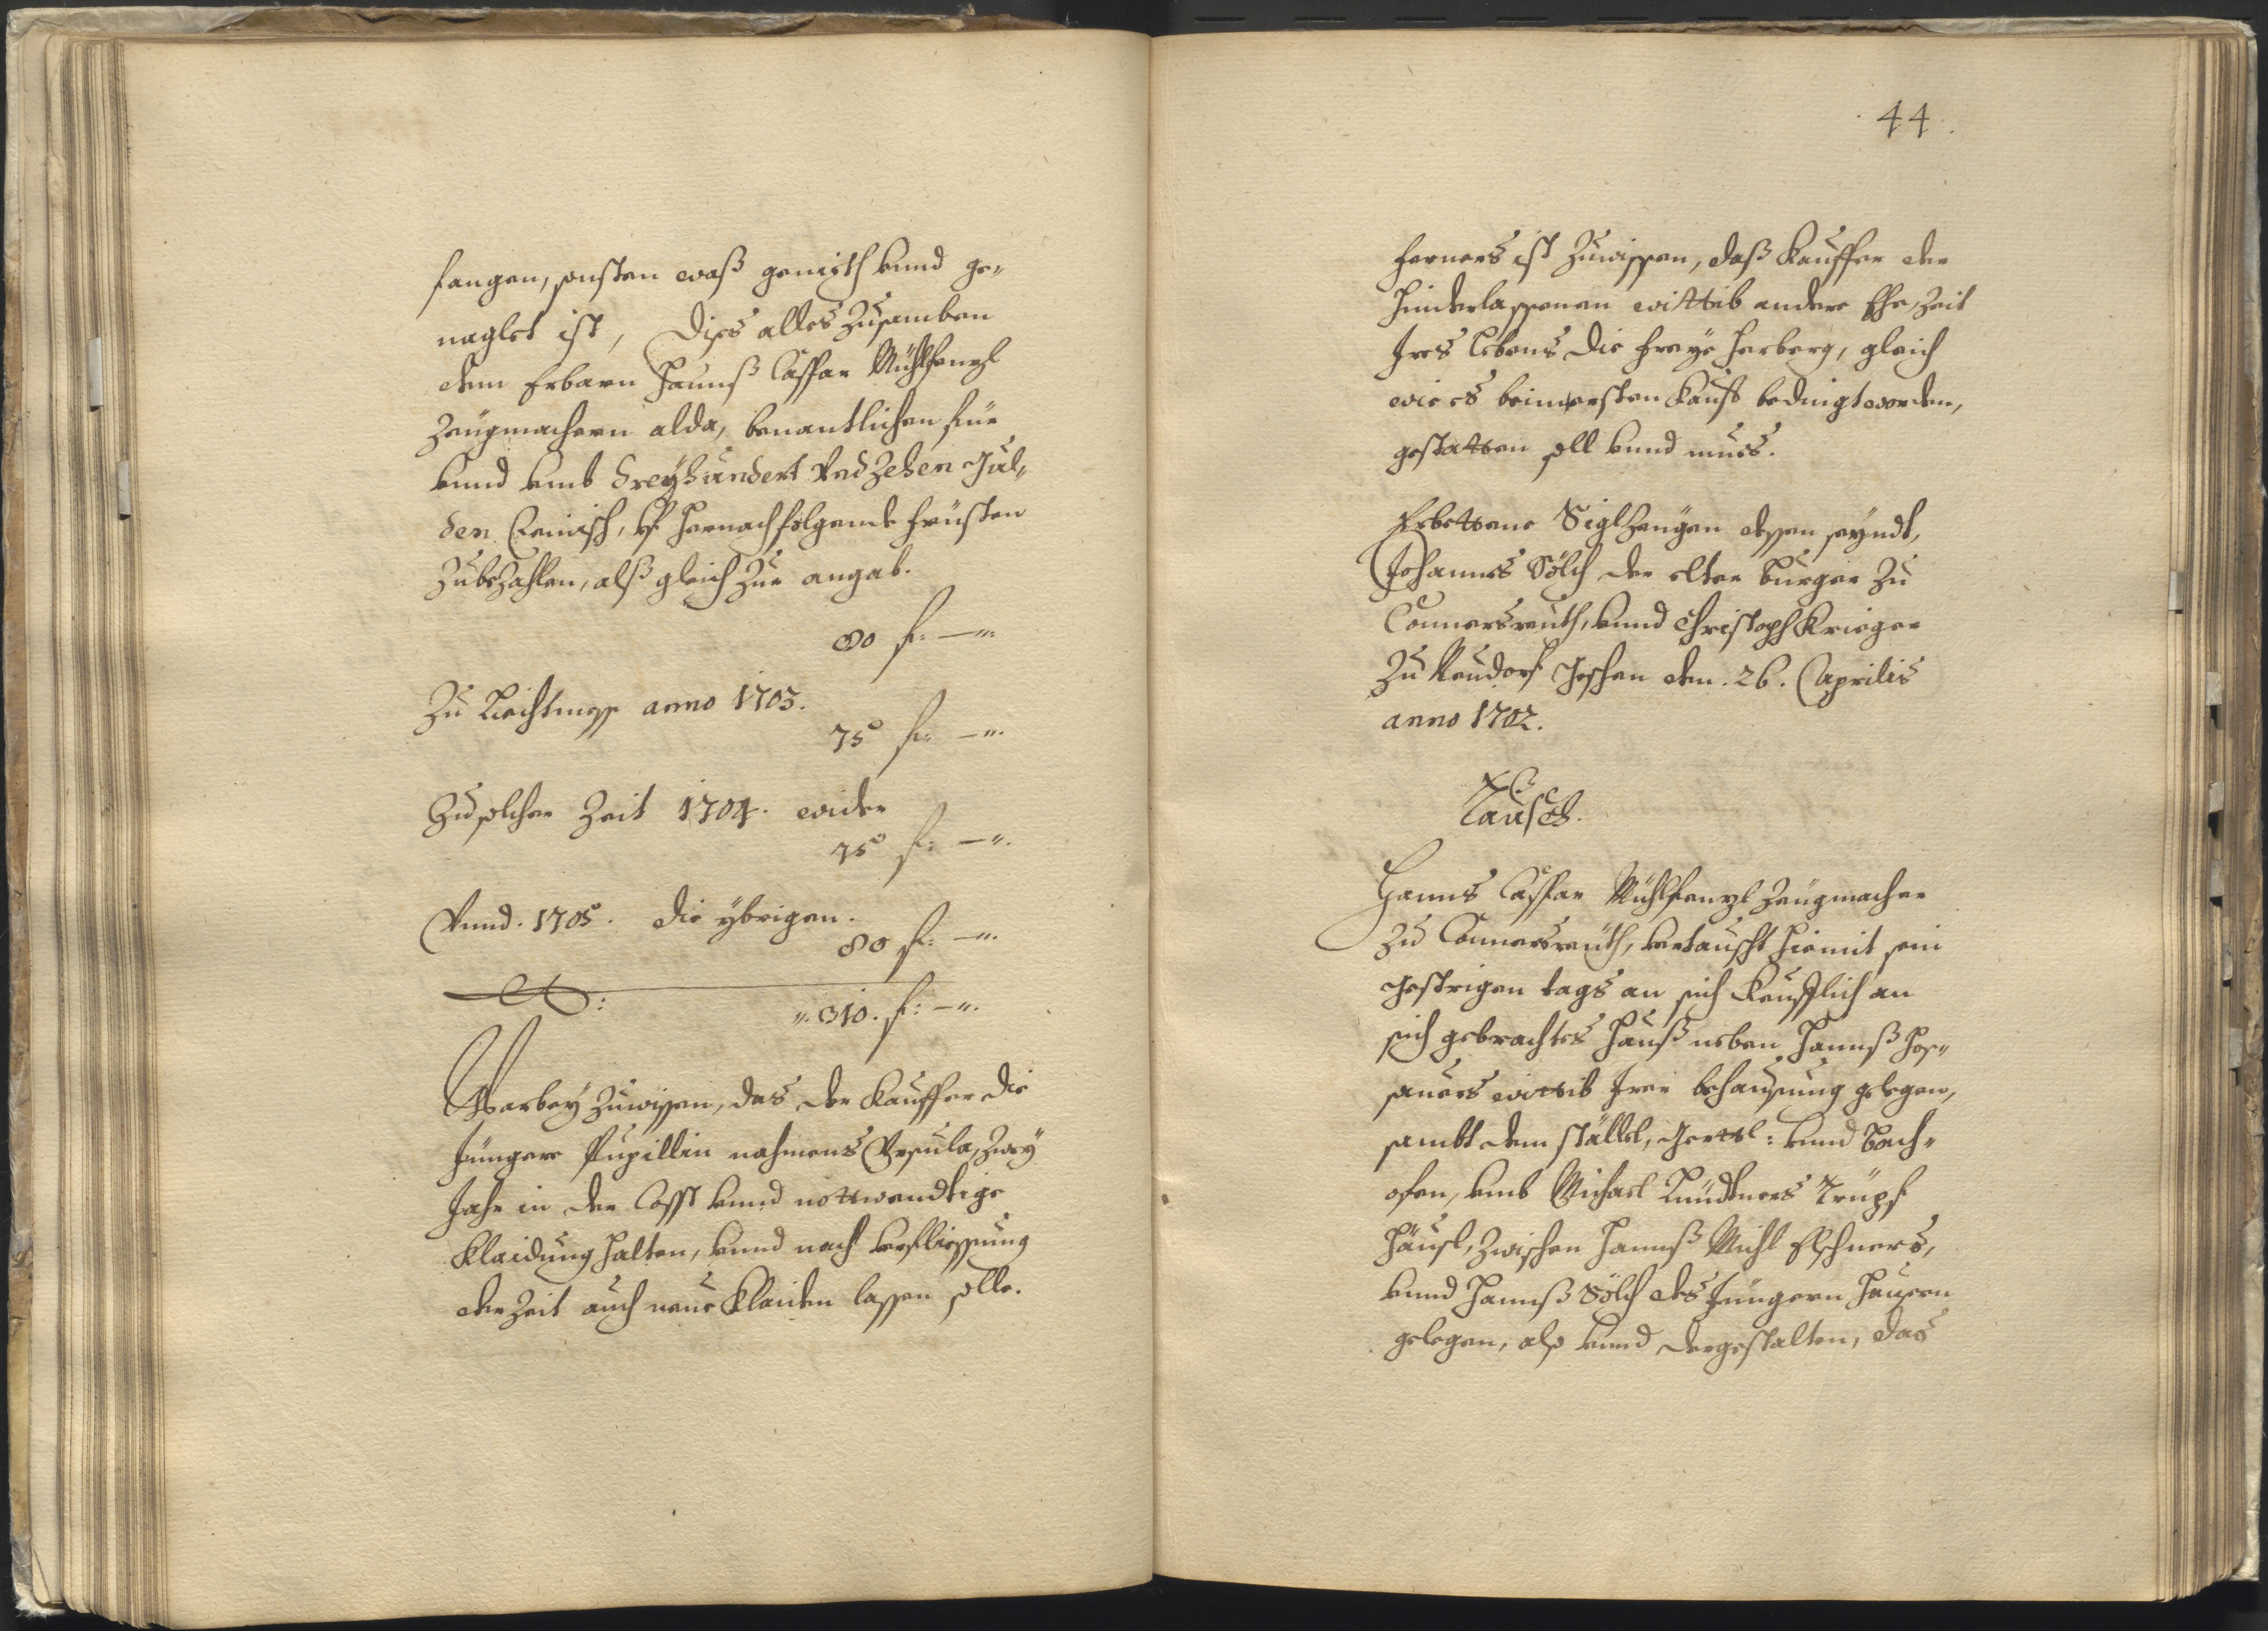 fangen, sonsten waß genieth vnnd ge„
naglet ist, dises alles Zusamben
dem Erbarn Hannß Caspar Mühlfenzl
Zeügmachern alda, benantlichen für
vnnd vmb dreÿhundert Vnd Zehen Gul„
den Reinisch, vf hernachfolgende früsten
Zubezahlen, alß gleich Zur angab.
80 f: —„.
Zu Liechtmess anno 1703.
75 f: —„.
Zu solcher Zeit 1704. wider
75 f: —„.
Vnnd. 1705. die ÿbrigen.
80 f: —„.
„.310. f: —„.
Warbeÿ Zuwissen, das der Kauffer die
Jüngere Pupillin nahmens Vrsula, Zweÿ
Jahr in der Cosst vnnd nottwendtige
Klaidung halten, vnnd nach verfliessung
der Zeit auch neue Klaider lassen solle.
44.
Ferners ist Zuwissen, daß Kauffer der
hinderlassenen wittib andere Ehe, Zeit
Ires lebens die freÿe herberg, gleich
wie es beim ersten Kauff bedingt worden,
gestatten soll vnnd mues.
Erbettene Siglzeugen dessen seyndt,
Johannes Sölch der elter burger Zu
Connersreüth, vnnd Christoph Krieger
Zu Neudorf Gschen den. 26. Aprilis
anno 1702.
Tausch.
Hanns Caspar Mühlfenzl Zeügmacher
Zu Connersreüth, vertauscht hiemit sein
gestrigen tags an sich Keufflich an
sich gebrachtes Hauß neben Hannß
wittib Irer behausung gelegen,
sambt dem ställel, Gertel: vnnd Bach„
ofen, vmb Michael Trüpf
häusl, Zwischen Hannß Michl
vnnd Hannß Sölch des Jüngern Heusern
gelegen, also vnnd dergestalten, das